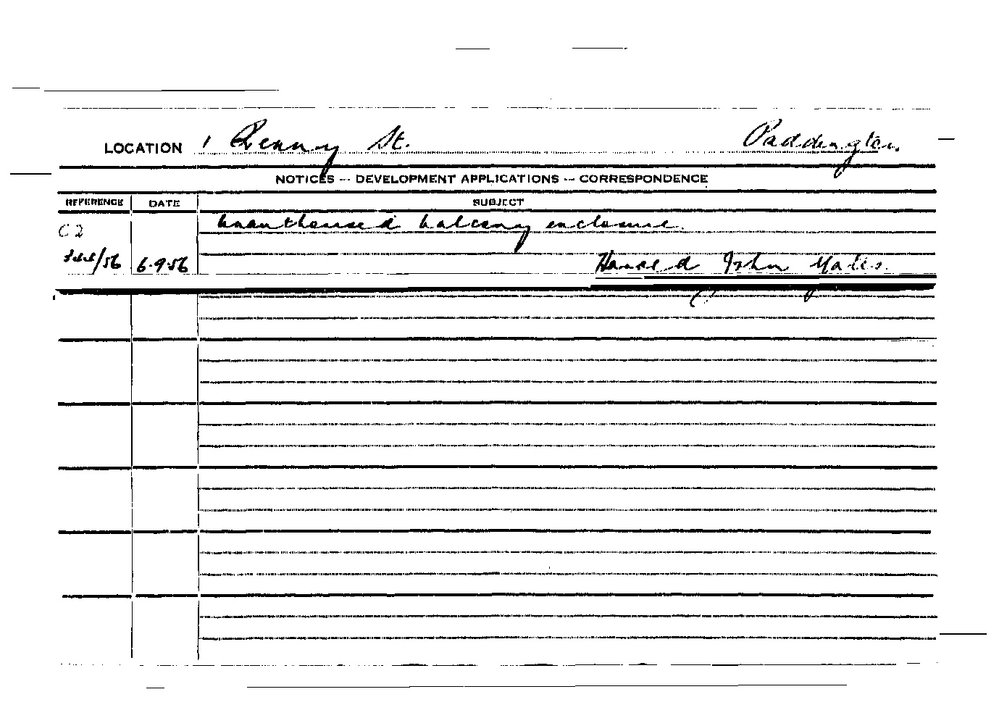 LOCATION 1 Renny St. Paddington.
NOTICES -- DEVELOPMENT APPLICATIONS -- CORRESPONDENCE
REFERENCE DATE SUBJECT
C 2 unauthorised balcony enclosure.
/56 6.9.56 Harold John Yates.